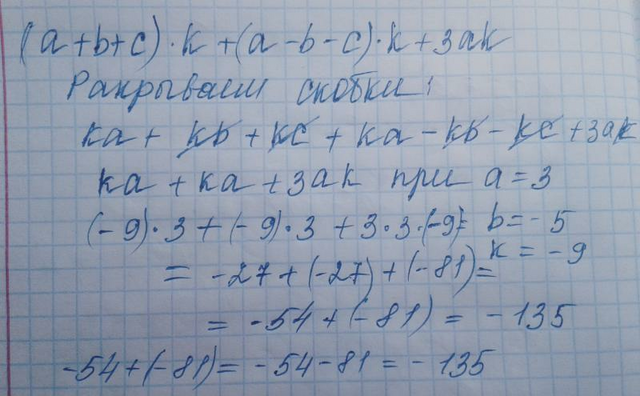 (a+b+c)·k+(a-b-c)·k+3ak
Ракрываем скобки:
ka + kb + kc + ka - kb - kc + 3ak
ka + ka + 3ak при a = 3
(-9)·3 + (-9)·3 + 3·3·(-9)= b = -5
= -27+(-27)+(-81)= k = -9
= -54+(-81) = -135
-54+(-81)= -54-81 = -135